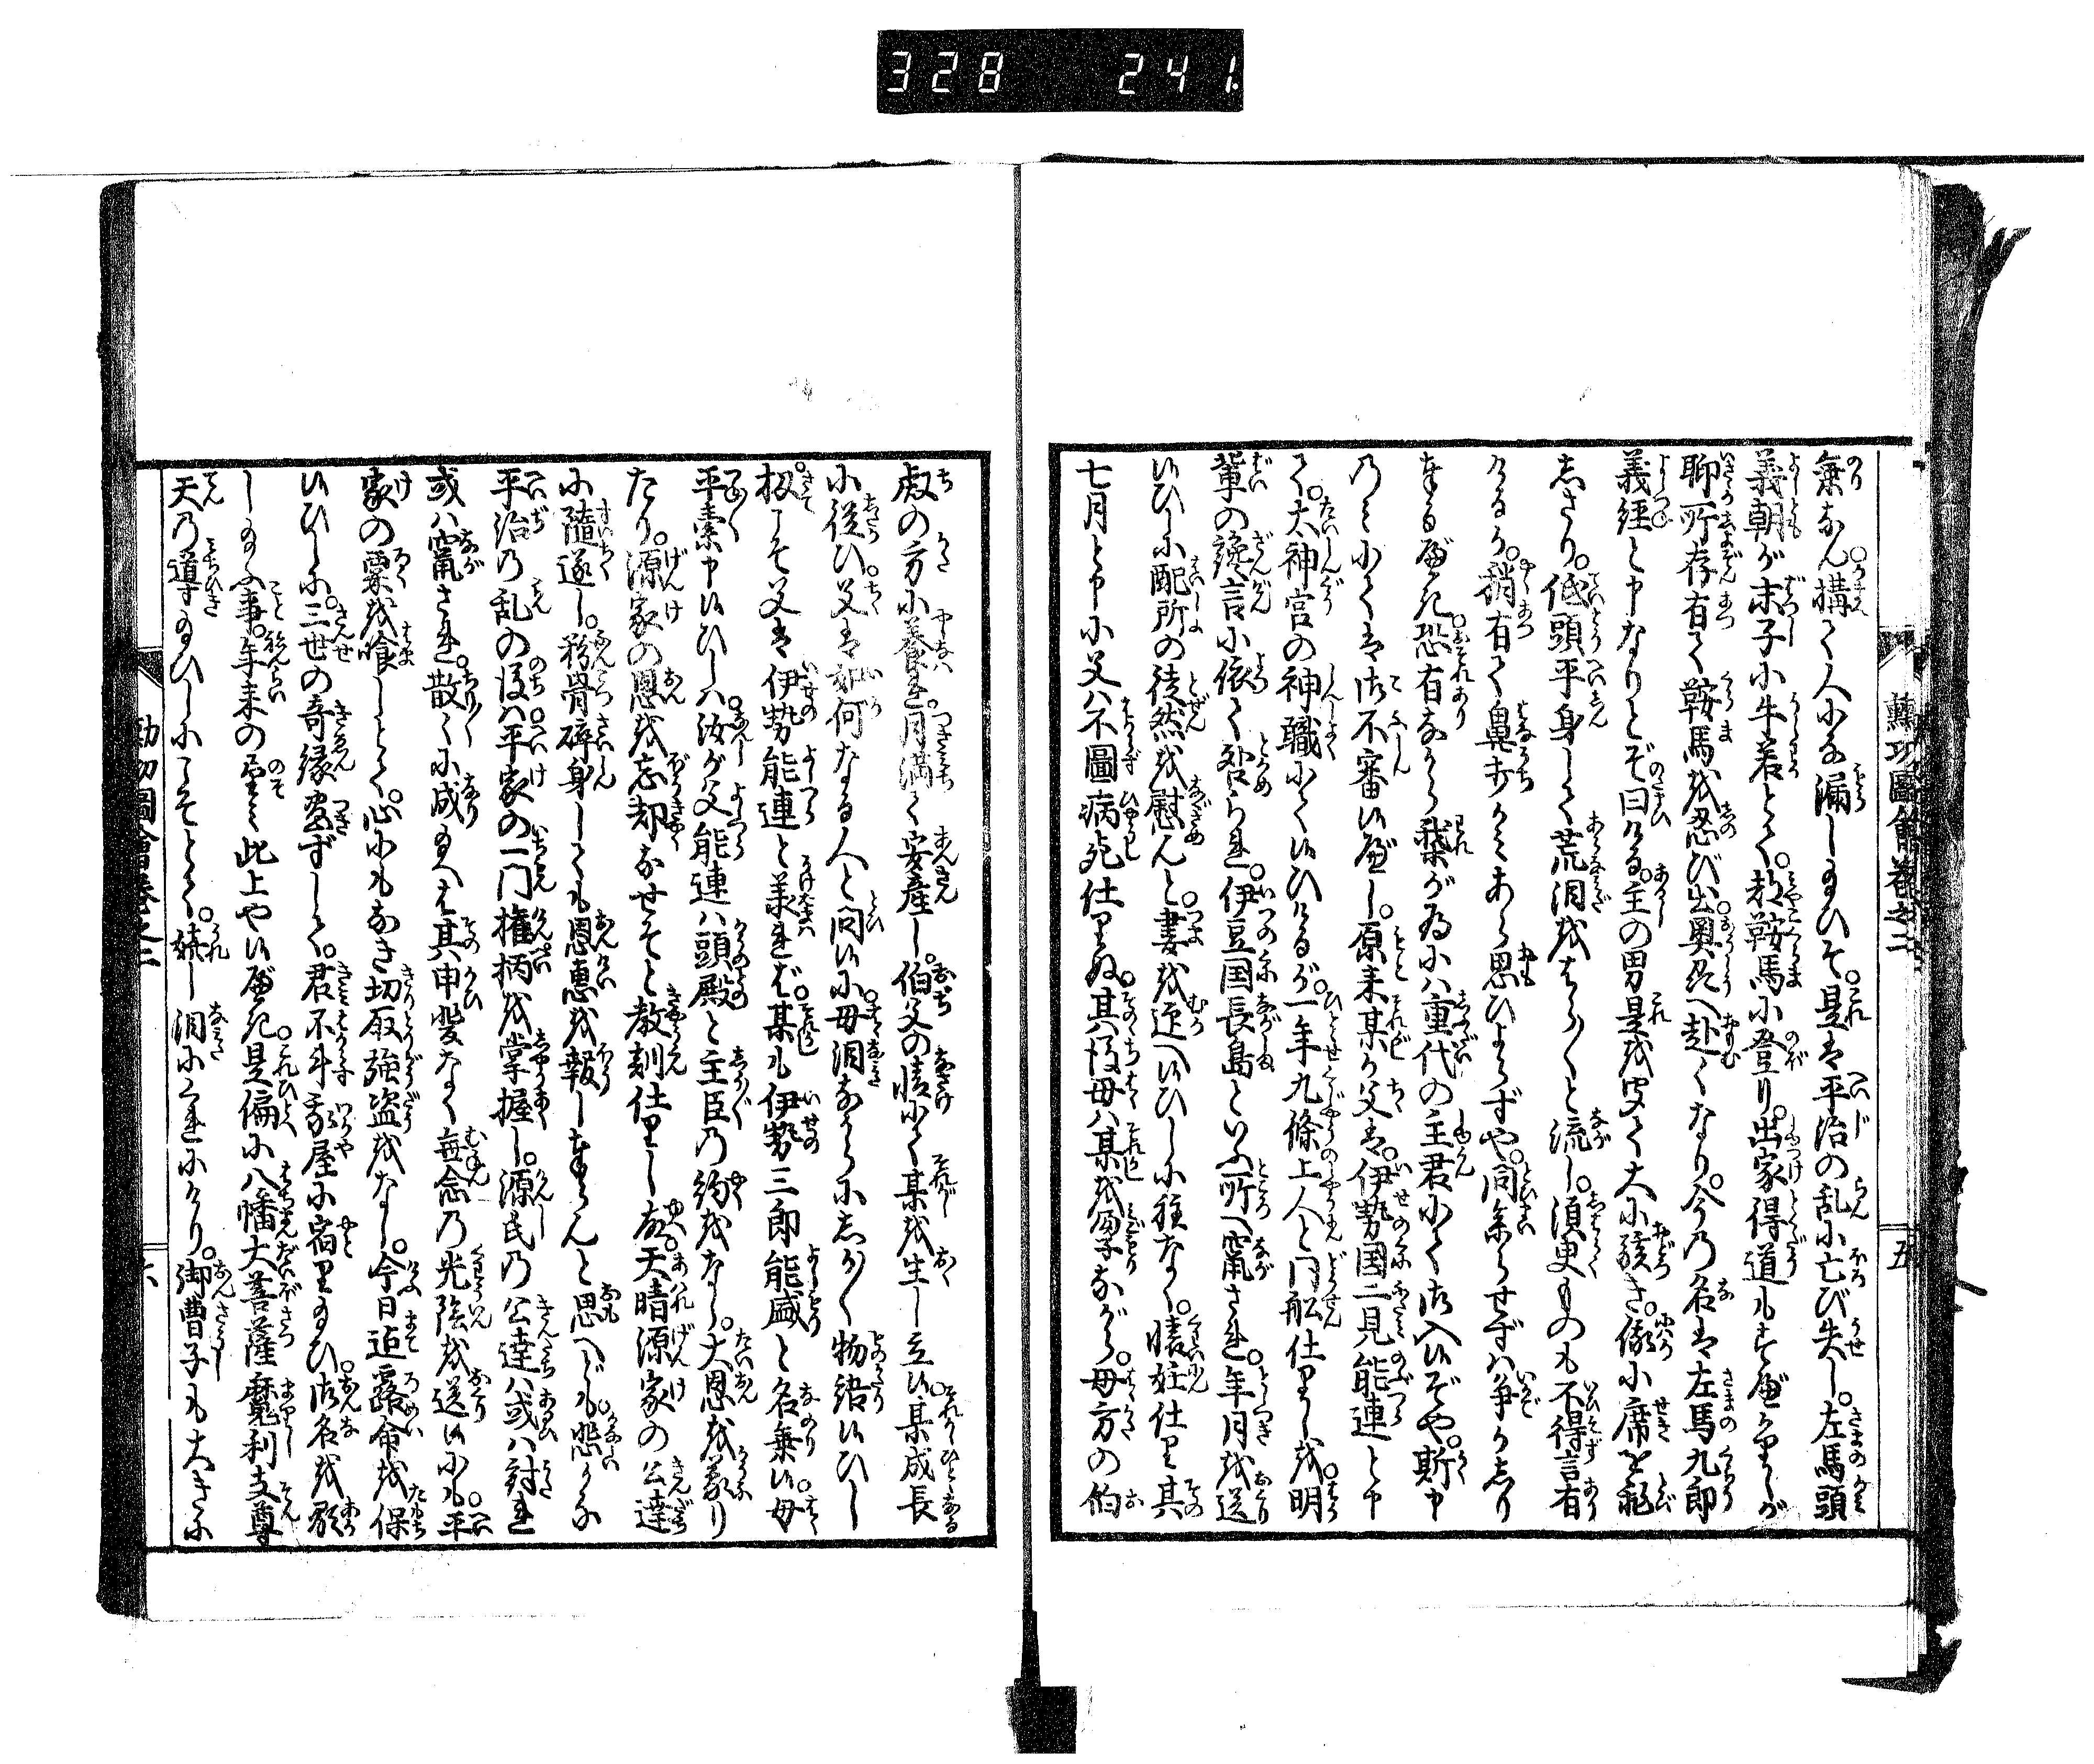 328 241
勲功圖會巻之二
五
乗なん構て人にな漏し玉ひそ。是は平治の乱に亡び失し。左馬頭
義朝が末子に牛若とて。都鞍馬に登り。出家得道もすべかりしが
聊所存有て鞍馬を忍び出奥州へ赴くなり。今の名は左馬九郎
義経と申なりとぞ曰ける。主の男是を聞て大に驚き。傲に席を飛
しさり。低頭平身して荒涙をはら〳〵と流し。須臾ものも不得言有
けるが。稍有て鼻打かみあら思ひよらずや。問参らせずは争か知り
奉るべき。恐有ながら我が為には重代の主君にて御入候ぞや。斯申
のみにては御不審候べし。原来某が父は。伊勢国二見能連と申
て。大神宮の神職にて候ひけるが。一年九條上人と同船仕りしを。明
輩の讒言に依て咎られ。伊豆国長島といふ所へ竄され。年月を送
候ひしに配所の徒然を慰んと。妻を迎へ候ひしに程なく。懐妊仕り其
七月と申に父は不圖病死仕りぬ。其後母は某を孕ながら。母方の伯
叔の方に養はれ。月満て安産し。伯父の情にて某を生し立候。某成長
に従ひ父は如何なる人と問候に母涙ながらにしか〳〵物語候ひし
扨こそ父は伊勢能連と承はれば。某も伊勢三郎能盛と名乗候。母
平素申候ひしは。汝が父能連は頭殿と主臣の約をなし。大恩を蒙り
たり。源家の恩を忘却なせそと教訓仕りし故。天晴源家の公達
に随逐し。粉骨砕身しても恩恵を報し奉らんと思へども。悲しかな
平治の乱の後は。平家の一門権柄を掌握し。源氏の公達は或は討れ
或は竄され。散〳〵に成玉へば其甲斐なく無念の光陰を送候にも。平
家の粟を喰しとて。心にもなき切取強盗をなし。今日迄露命を保
候ひしに。三世の奇縁尽ずして。君不斗我屋に宿り玉ひ。御名を顕
し玉ふ事。年来の望み此上や候べき。是偏に八幡大菩薩摩利支尊
天の導玉ひしにこそとて。嬉し涙にくれにけり。御曹子も大きに
勲功圖會巻之二
六